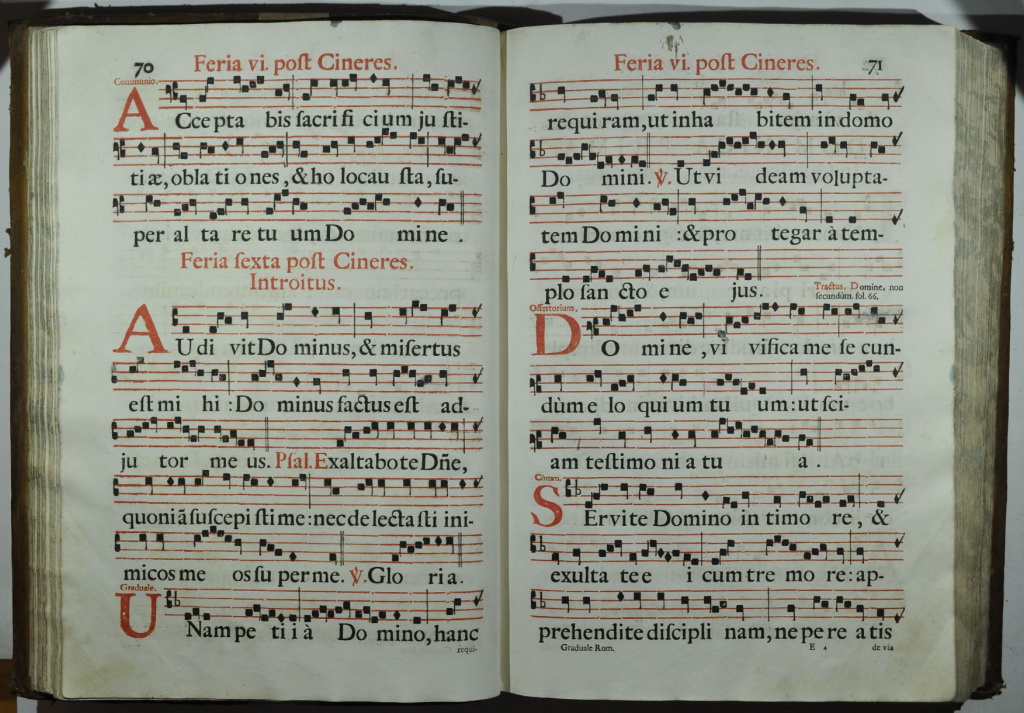 70
Feria vi. poſt Cineres.
Communio.
A Ccepta bis ſacri fi ci um ju ſti-
ti æ, obla ti o nes, & ho locau ſta, ſu-
per al ta re tu um Do mi ne .
Feria ſexta poſt Cineres.
Introitus.
A U di vit Do minus, & miſertus
eſt mi hi : Do minus factus eſt ad-
ju tor me us. Pſal. Exaltabo te Dñe,
quoniã ſuſcepi ſti me : nec delecta ſti ini-
micos me os ſu per me. ℣. Glo ri a.
Graduale.
U Nam pe ti i à Do mino, hanc
requi-
Feria vi. poſt Cineres.
71
requi ram, ut inha bitem in domo
Do mini. ℣. Ut vi deam volupta-
tem Do mi ni : & pro tegar à tem-
plo ſan cto e jus.
Tractus. Domine, non
ſecundùm. fol. 66.
Offertorium.
D O mi ne , vi vifica me ſe cun-
dùm e lo qui um tu um : ut ſci-
am teſtimo ni a tu a .
Commu.
S Ervite Domino in timo re, &
exulta te e i cum tre mo re : ap-
prehendite diſcipli nam, ne pe re a tis
Graduale Rom.
E 4
de via